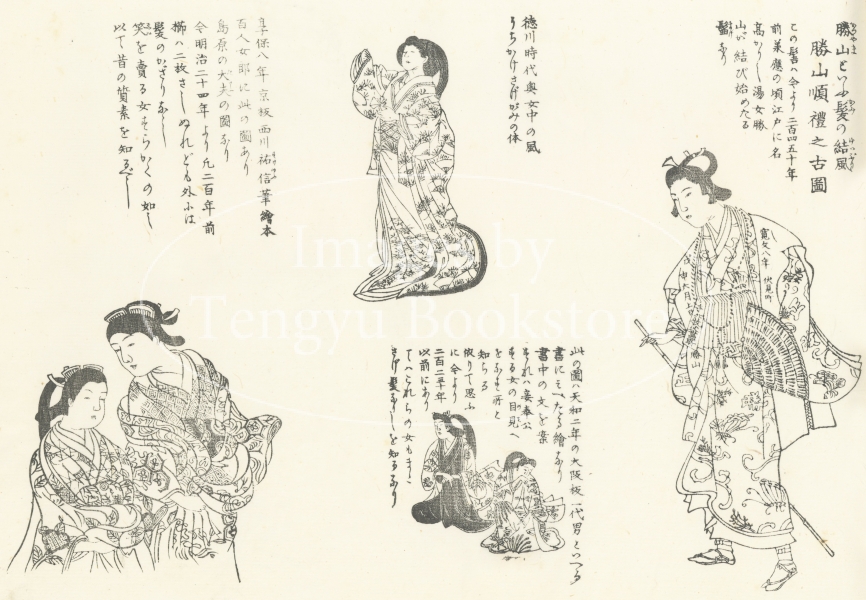 勝山といふ髪の結風
勝山順禮之古圖
この髻ハ今より二百四五十年
前萬應の頃江戸に名
高かりし湯女勝
山が結び始めたる
髷なり
寛文八年
勝山
徳川時代奥女中の風
うちかけさげがみの体
享保八年京板西川祐信筆繪本
百人女郎に此の圖あり
島原の大夫の圖なり
今明治二十四年より凡二百年前
櫛ハ二枚さしぬれども外には
髪のかざりなし
笑を賣る女すらかくの如し
以て昔の質素を知るべし
此の圖ハ天和二年の大阪板一代男といへる
書にそへたる繪なり
書中の文を案
するに
する女の目見へ
をなす所と
知らる
依りて思ふ
に今より
二百二三十年
以前にあり
てハこれらの女もまた
さげ髪なりしを知るなり
Images by
Tengyu Bookstore